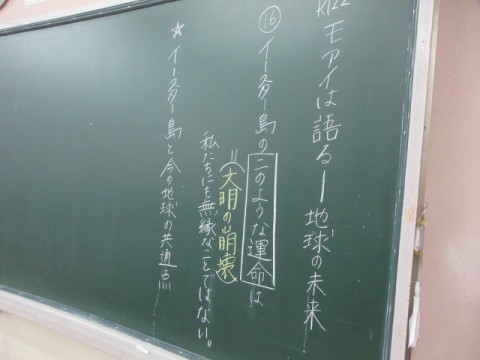 P.122 モアイは語る―地球の未来
⑯イースター島のこのような運命は
＝(文明の崩壊)
私たちにも無縁なことではない。
☆イースター島と今の地球の共通点